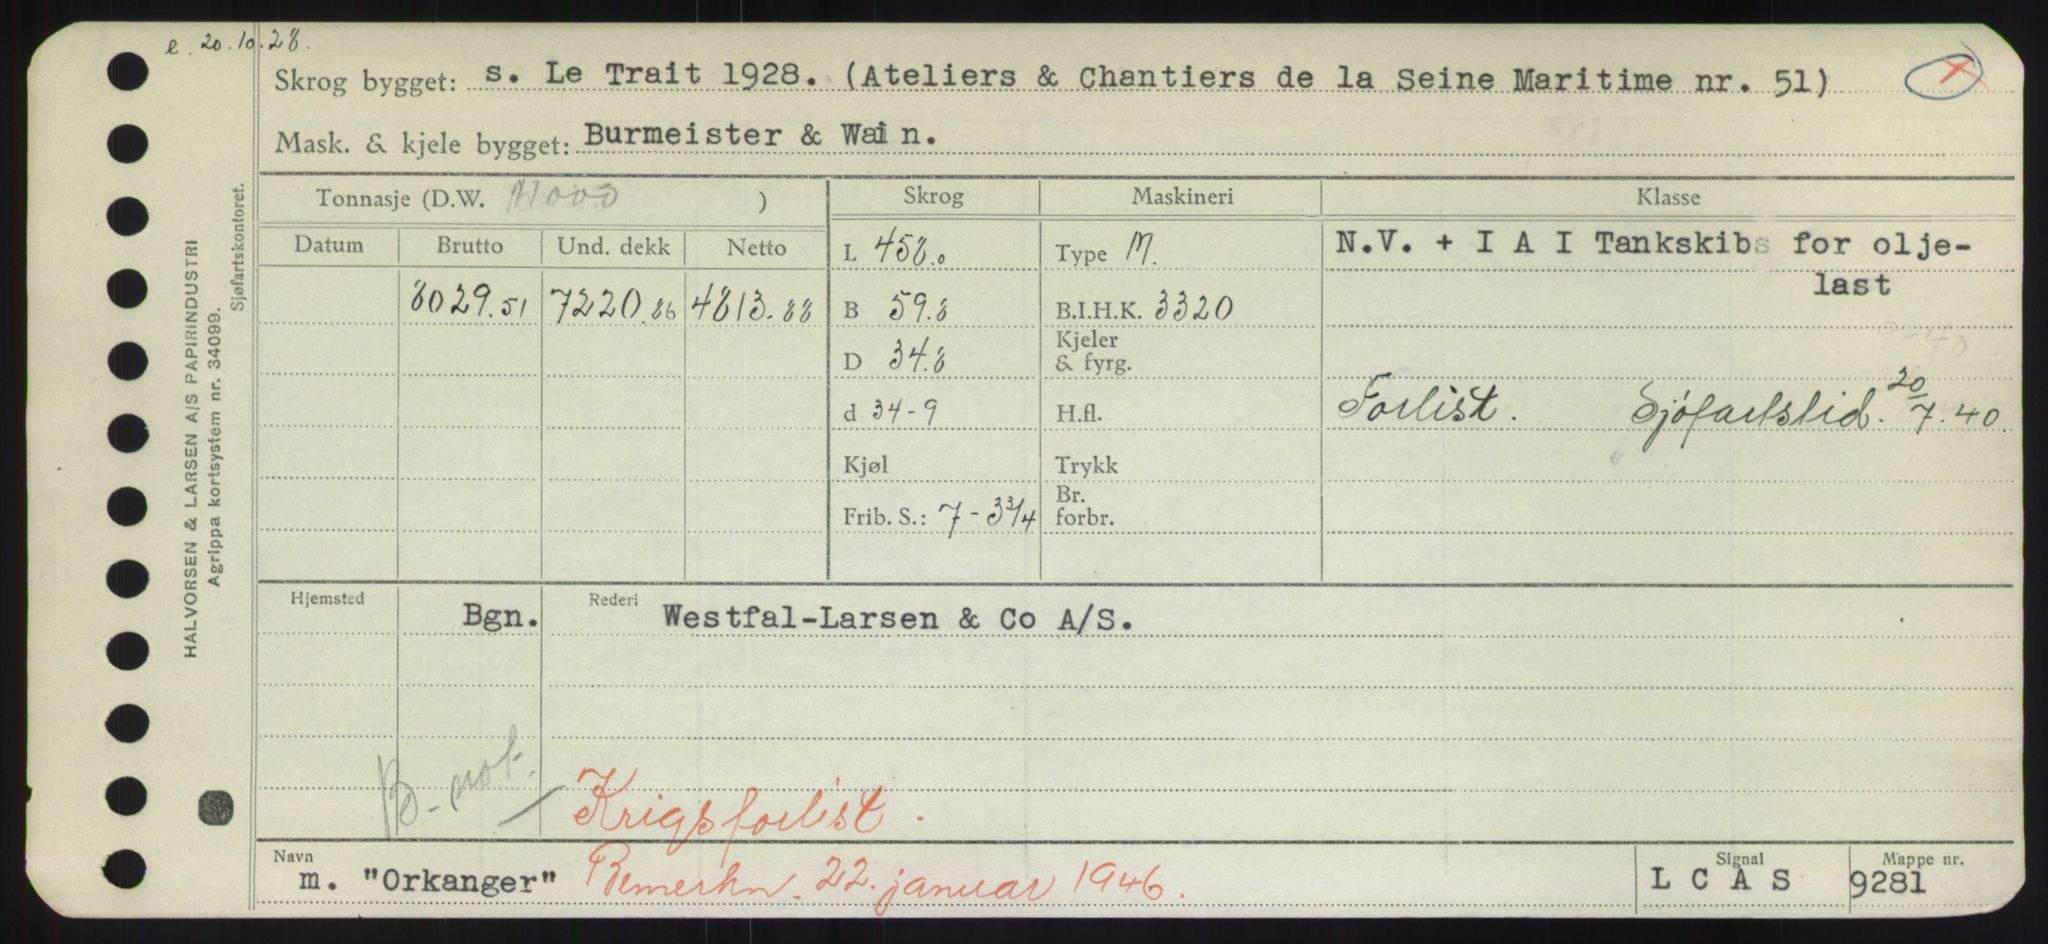 e. 20.10.28.
Skrog bygget: s. Le Trait 1928. (Ateliers & Chantiers de la Seine Maritime nr. 51)
Mask. & kjele bygget: Burmeister & Wain.
Tonnasje (D.W. 11000 ) Skrog Maskineri Klasse
Datum Brutto Und. dekk Netto L 458.0 Type M. N.V. + I A I Tankskibs for olje-
last
8029.51 7220.86 4813.88 B 59.8 B.I.H.K. 3320
Kjeler
D 34.8 & fyrg.
d 34-9 H.fl. Forlist. Sjöfartstid. 20/7.40.
Kjøl Trykk
Br.
Frib. S.: 7-3 3/4 forbr.
Hjemsted Bgn. Rederi Westfal-Larsen & Co A/S.
B-not.
Krigsforlist.
Navn Signal Mappe nr.
m. "Orkanger" Bemerkn. 22. januar 1946. L C A S 9281
HALVORSEN & LARSEN A/S PAPIRINDUSTRI
Agrippa kortsystem nr. 34099.
Sjøfartskontoret.